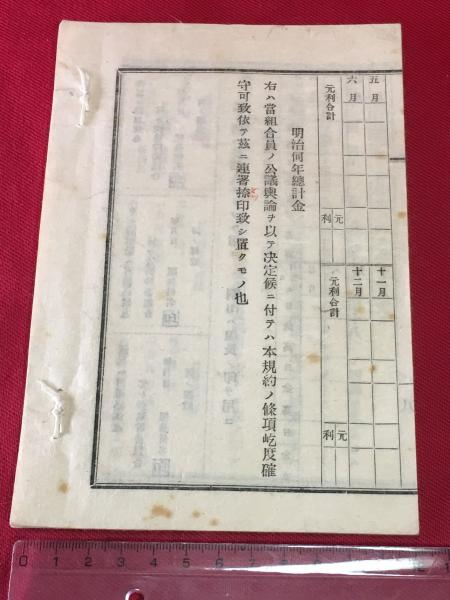 五月
十一月
六月
十二月
元利合計
元
利
元利合計
元
利
明治何年總計金
右ハ當組合員ノ公議輿論ヲ以テ決定候ニ付テハ本規約ノ條項屹度確
守可致依テ茲ニ連署捺印致シ置クモノ也
0 1 2 3 4 5 6 7 8 9 10 11 12 13